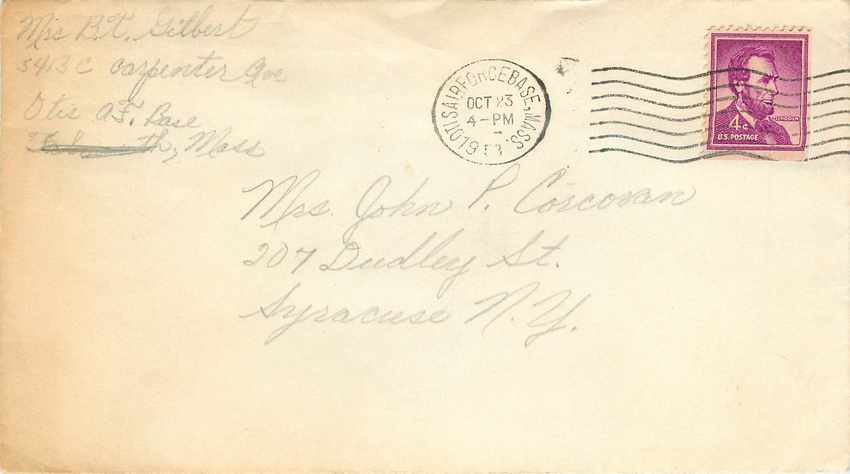 Mrs R.T. Gilbert
5413 C Carpenter Ave
Otis A.F. Base
Mass
OTIS AIR FORCE BASE, MASS.
OCT 23
4-PM
LINCOLN
4¢
U.S. POSTAGE
Mrs. John P. Corcoran
207 Dudley St.
Syracuse N.Y.